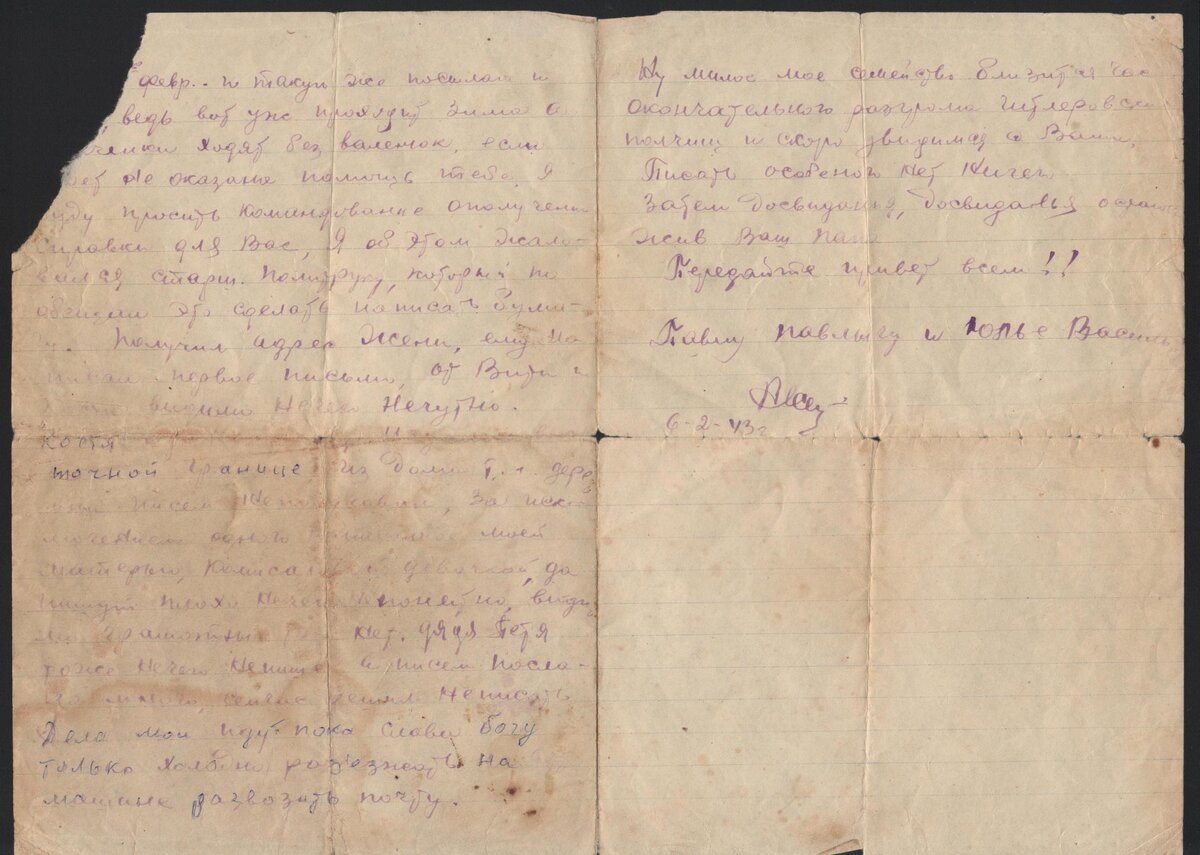 февр.. и такую же посылаю и
ведь вот уж проходит зима а
ходят без валенок. если
не оказана помощь тебе. Я
буду просить командование о получении
справки для Вас, Я об этом жало-
вался старш. политруку, который по
обещал это сделать написать бума-
гу. Получил адрес Жени, ему на
писал первое письмо, от Вити и
Нечего Нечутно.
Костя
точной границе из дома т.е. дерев
ни писем Неполучаю, за иск
лючением одного моей
матерью, девочкой, да
пишут плохо Нечего Непонятно, види
мо грамотных Нет. дядя Петя
тоже Нечего Непишет а писем посла-
но много, сейчас решил Неписать
Дела мои идут пока слава богу
только холодно разъезжать на
машине развозить почту.
Ну милое мое семейство близится час
окончательного разгрома гитлеровских
полчищ и скоро увидимся с Вами.
Писать особеного нет Ничего
Затем Досвиданья, Досвиданья
жив Ваш папа
Передайте привет всем!!
Павлу Павлычу и Юлье Василь
6-2-43г